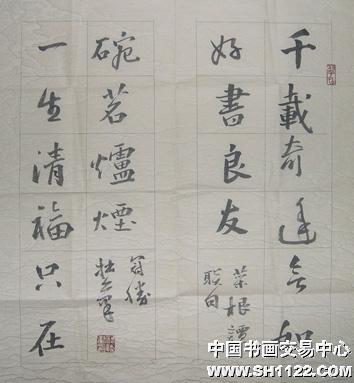 千載奇逢無如
好書良友
菜根譚
聯句
一生清福只在
碗茗爐煙
中国书画交易中心
www.SH1122.COM